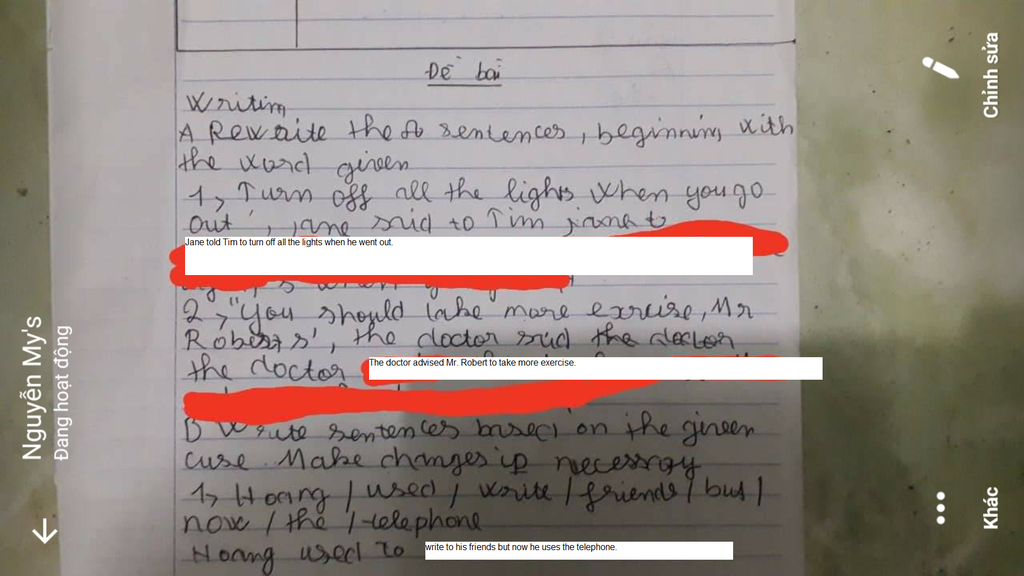 Đề bài
Writing
A Rewrite the sentences, beginning with
the word given
1, Turn off all the lights when you go
out', jane said to Tim jane t
Jane told Tim to turn off all the lights when he went out.
2, "You should take more exercise, Mr
Roberts', the doctor said the doctor
the doctor
The doctor advised Mr. Robert to take more exercise.
B Write sentences based on the given
cuse. Make changes ip necessray
1, Hoang / used / write / friends / but /
now / the / telephone
Hoang used to
write to his friends but now he uses the telephone.
Nguyễn My's
Đang hoạt động
Chỉnh sửa
Khác